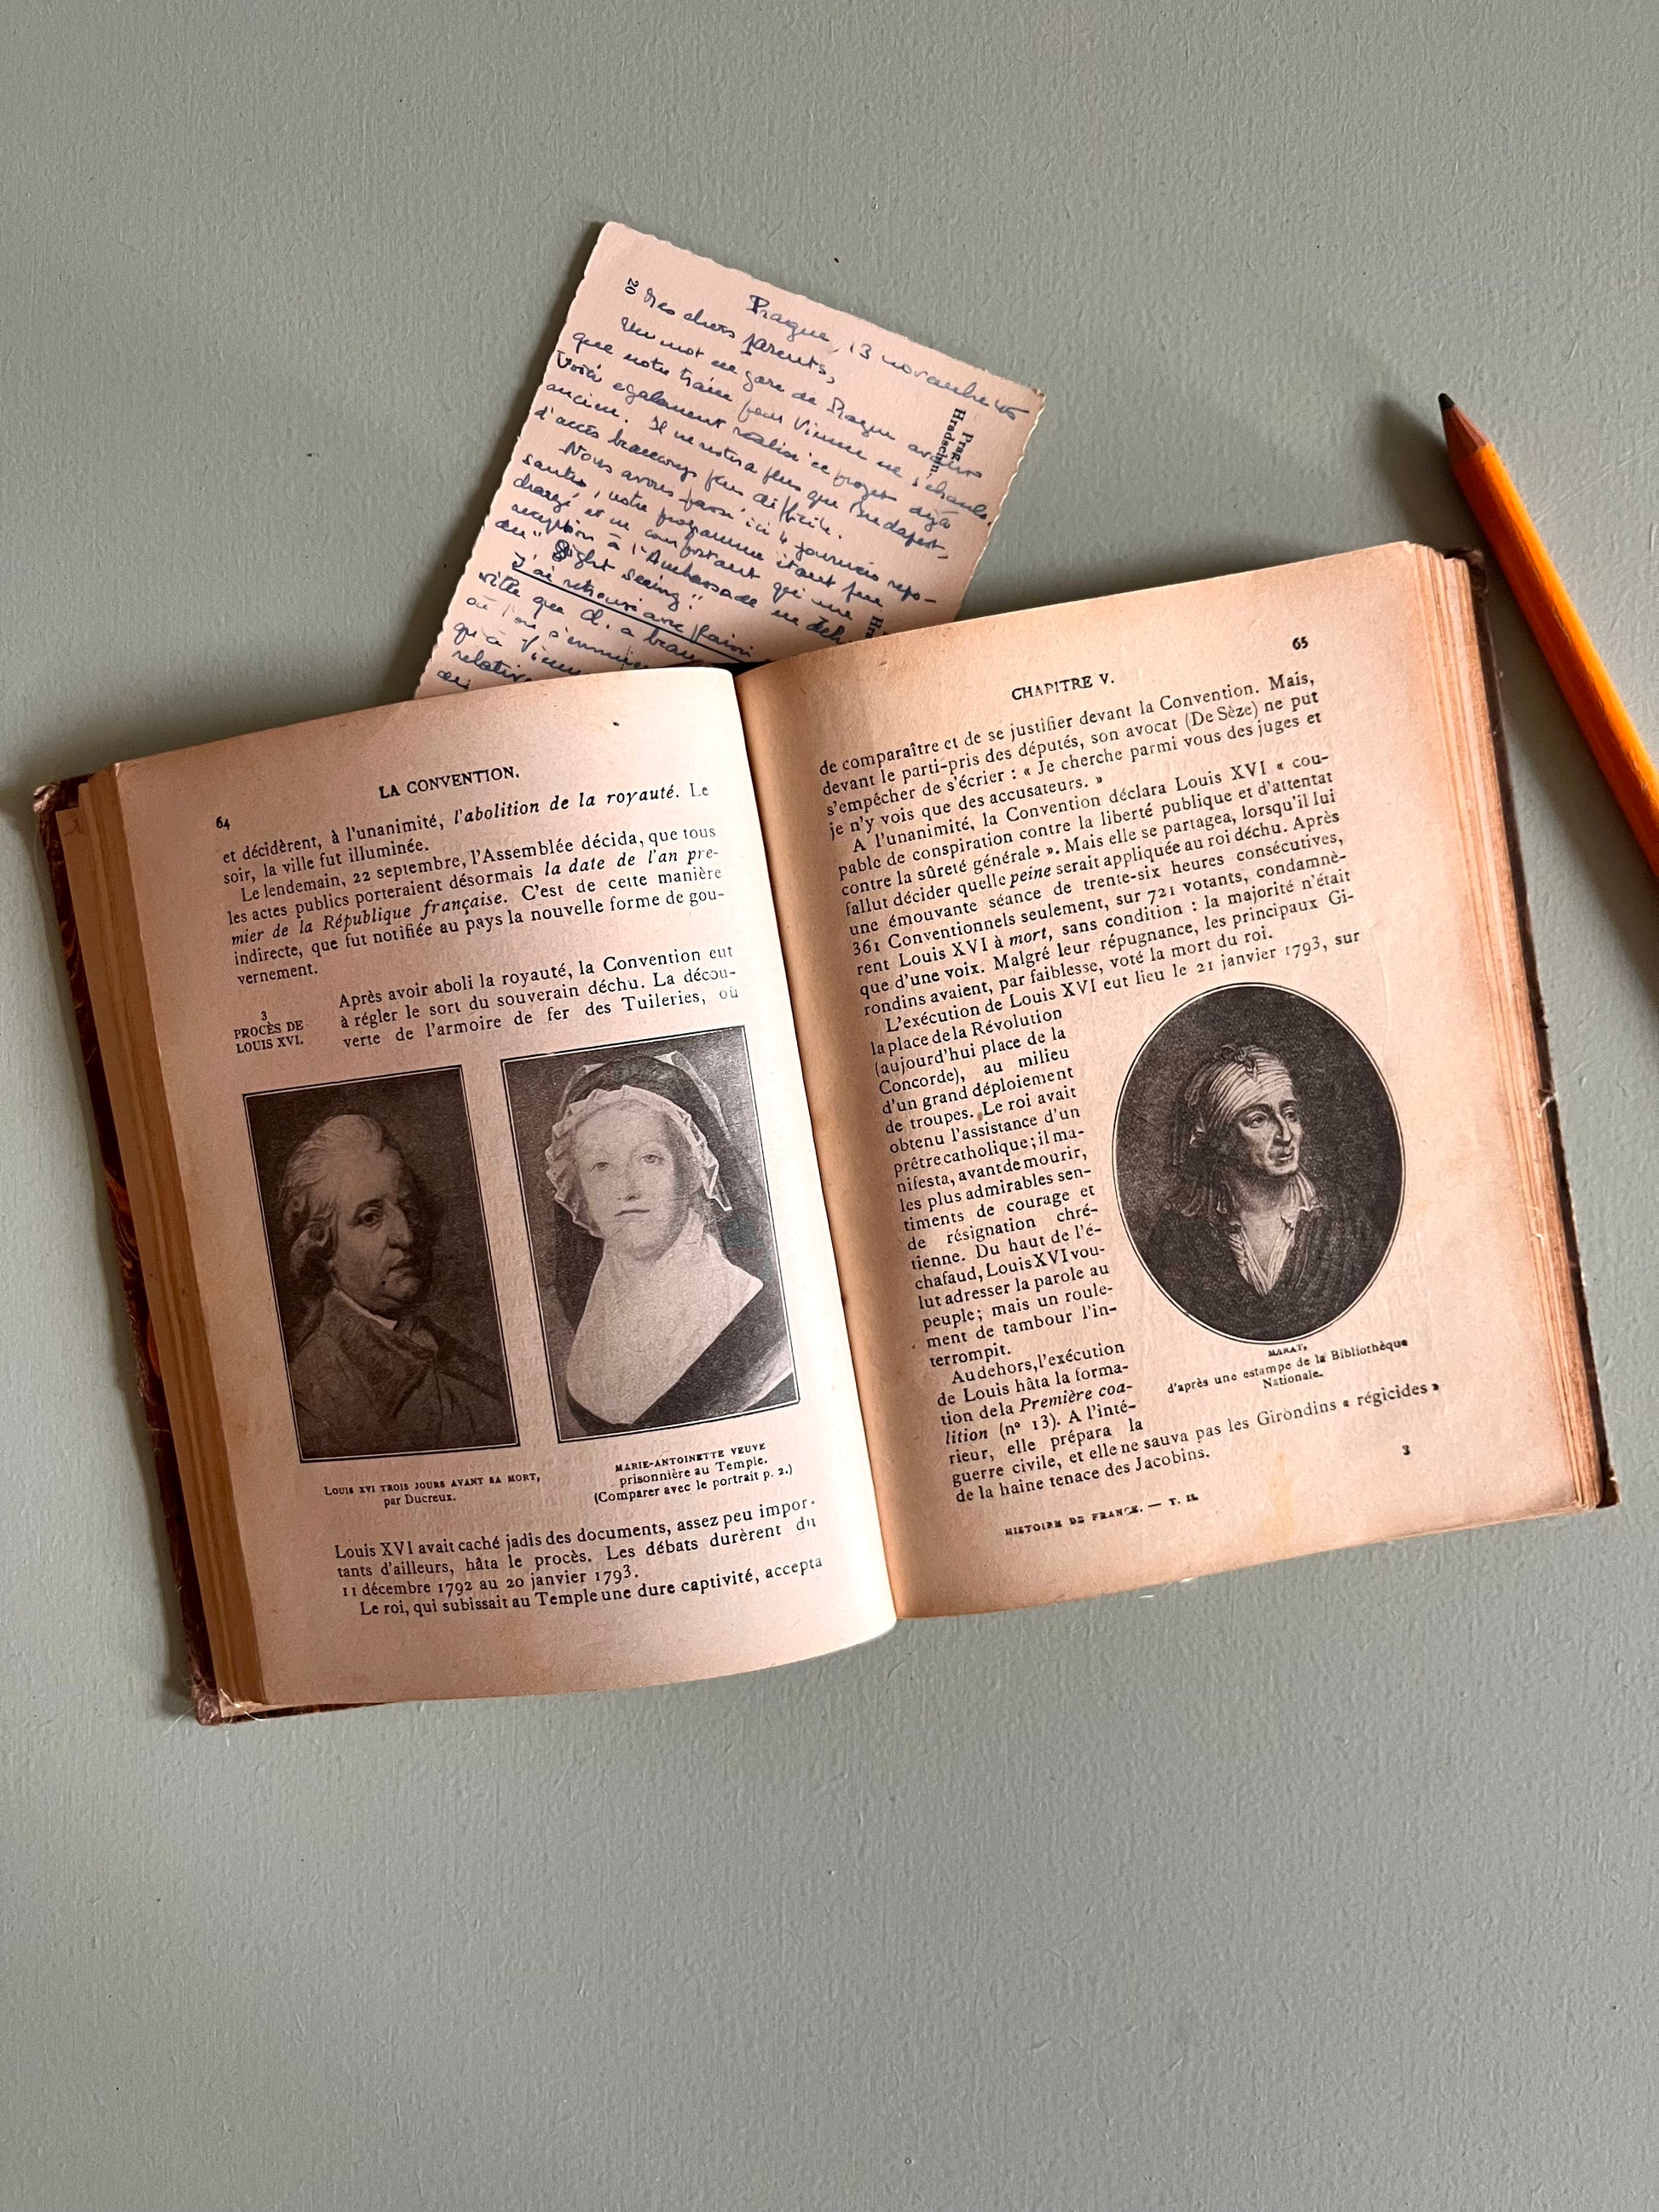 Prague, 13 novembre
20
Mes chers parents,
Un mot en gare de Prague avant
que notre train pour Vienne ne s'ébranle.
Voici également réalisé ce projet déjà
ancien. Il ne restera plus que Budapest,
d'accès beaucoup plus difficile.
Nous avons passé ici 4 journées repo-
santes, notre programme étant peu
chargé et ne comportant qu'une
réception à l'Ambassade en dehors
du "Sight seeing".
J'ai retrouvé avec plaisir
ville que
où l'on
qu'à
relative
Prag.
Hradschin.
64
LA CONVENTION.
et décidèrent, à l'unanimité, l'abolition de la royauté. Le
soir, la ville fut illuminée.
Le lendemain, 22 septembre, l'Assemblée décida, que tous
les actes publics porteraient désormais la date de l'an pre-
mier de la République française. C'est de cette manière
indirecte, que fut notifiée au pays la nouvelle forme de gou-
vernement.
3
PROCÈS DE
LOUIS XVI.
Après avoir aboli la royauté, la Convention eut
à régler le sort du souverain déchu. La décou-
verte de l'armoire de fer des Tuileries, où
LOUIS XVI TROIS JOURS AVANT SA MORT,
par Ducreux.
MARIE-ANTOINETTE VEUVE
prisonnière au Temple.
(Comparer avec le portrait p. 2.)
Louis XVI avait caché jadis des documents, assez peu impor-
tants d'ailleurs, hâta le procès. Les débats durèrent du
11 décembre 1792 au 20 janvier 1793.
Le roi, qui subissait au Temple une dure captivité, accepta
65
CHAPITRE V.
de comparaître et de se justifier devant la Convention. Mais,
devant le parti-pris des députés, son avocat (De Sèze) ne put
s'empêcher de s'écrier : « Je cherche parmi vous des juges et
je n'y vois que des accusateurs. »
A l'unanimité, la Convention déclara Louis XVI « cou-
pable de conspiration contre la liberté publique et d'attentat
contre la sûreté générale ». Mais elle se partagea, lorsqu'il lui
fallut décider quelle peine serait appliquée au roi déchu. Après
une émouvante séance de trente-six heures consécutives,
361 Conventionnels seulement, sur 721 votants, condamnè-
rent Louis XVI à mort, sans condition : la majorité n'était
que d'une voix. Malgré leur répugnance, les principaux Gi-
rondins avaient, par faiblesse, voté la mort du roi.
L'exécution de Louis XVI eut lieu le 21 janvier 1793, sur
la place de la Révolution
(aujourd'hui place de la
Concorde), au milieu
d'un grand déploiement
de troupes. Le roi avait
obtenu l'assistance d'un
prêtre catholique; il ma-
nifesta, avant de mourir,
les plus admirables sen-
timents de courage et
de résignation chré-
tienne. Du haut de l'é-
chafaud, Louis XVI vou-
lut adresser la parole au
peuple; mais un roule-
ment de tambour l'in-
terrompit.
Au dehors, l'exécution
de Louis hâta la forma-
tion de la Première coa-
lition (n° 13). A l'inté-
rieur, elle prépara la
guerre civile, et elle ne sauva pas les Girondins « régicides »
de la haine tenace des Jacobins.
MARAT,
d'après une estampe de la Bibliothèque
Nationale.
HISTOIRE DE FRANCE. — T. II.
3